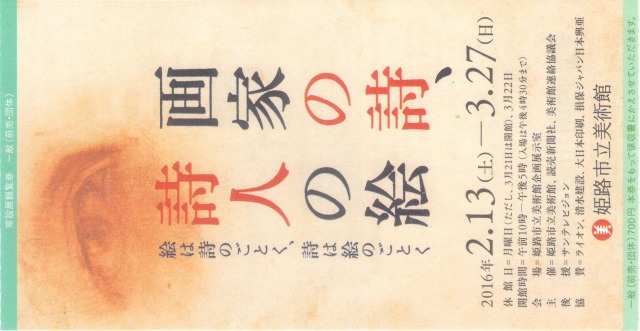 常設展観覧券　一般（前売・団体）
画家の詩、
詩人の絵
絵は詩のごとく、詩は絵のごとく
2016年2.13（土）—3.27（日）
休館日＝月曜日（ただし、3月21日は開館）、3月22日
開館時間＝午前10時—午後5時（入場は午後4時30分まで）
会場＝姫路市立美術館企画展示室
主催＝姫路市立美術館、読売新聞社、美術館連絡協議会
後援＝サンテレビジョン
協賛＝ライオン、清水建設、大日本印刷、損保ジャパン日本興亜
美 姫路市立美術館
一般（前売・団体）700円 本券をもって領収書にかえさせていただきます。